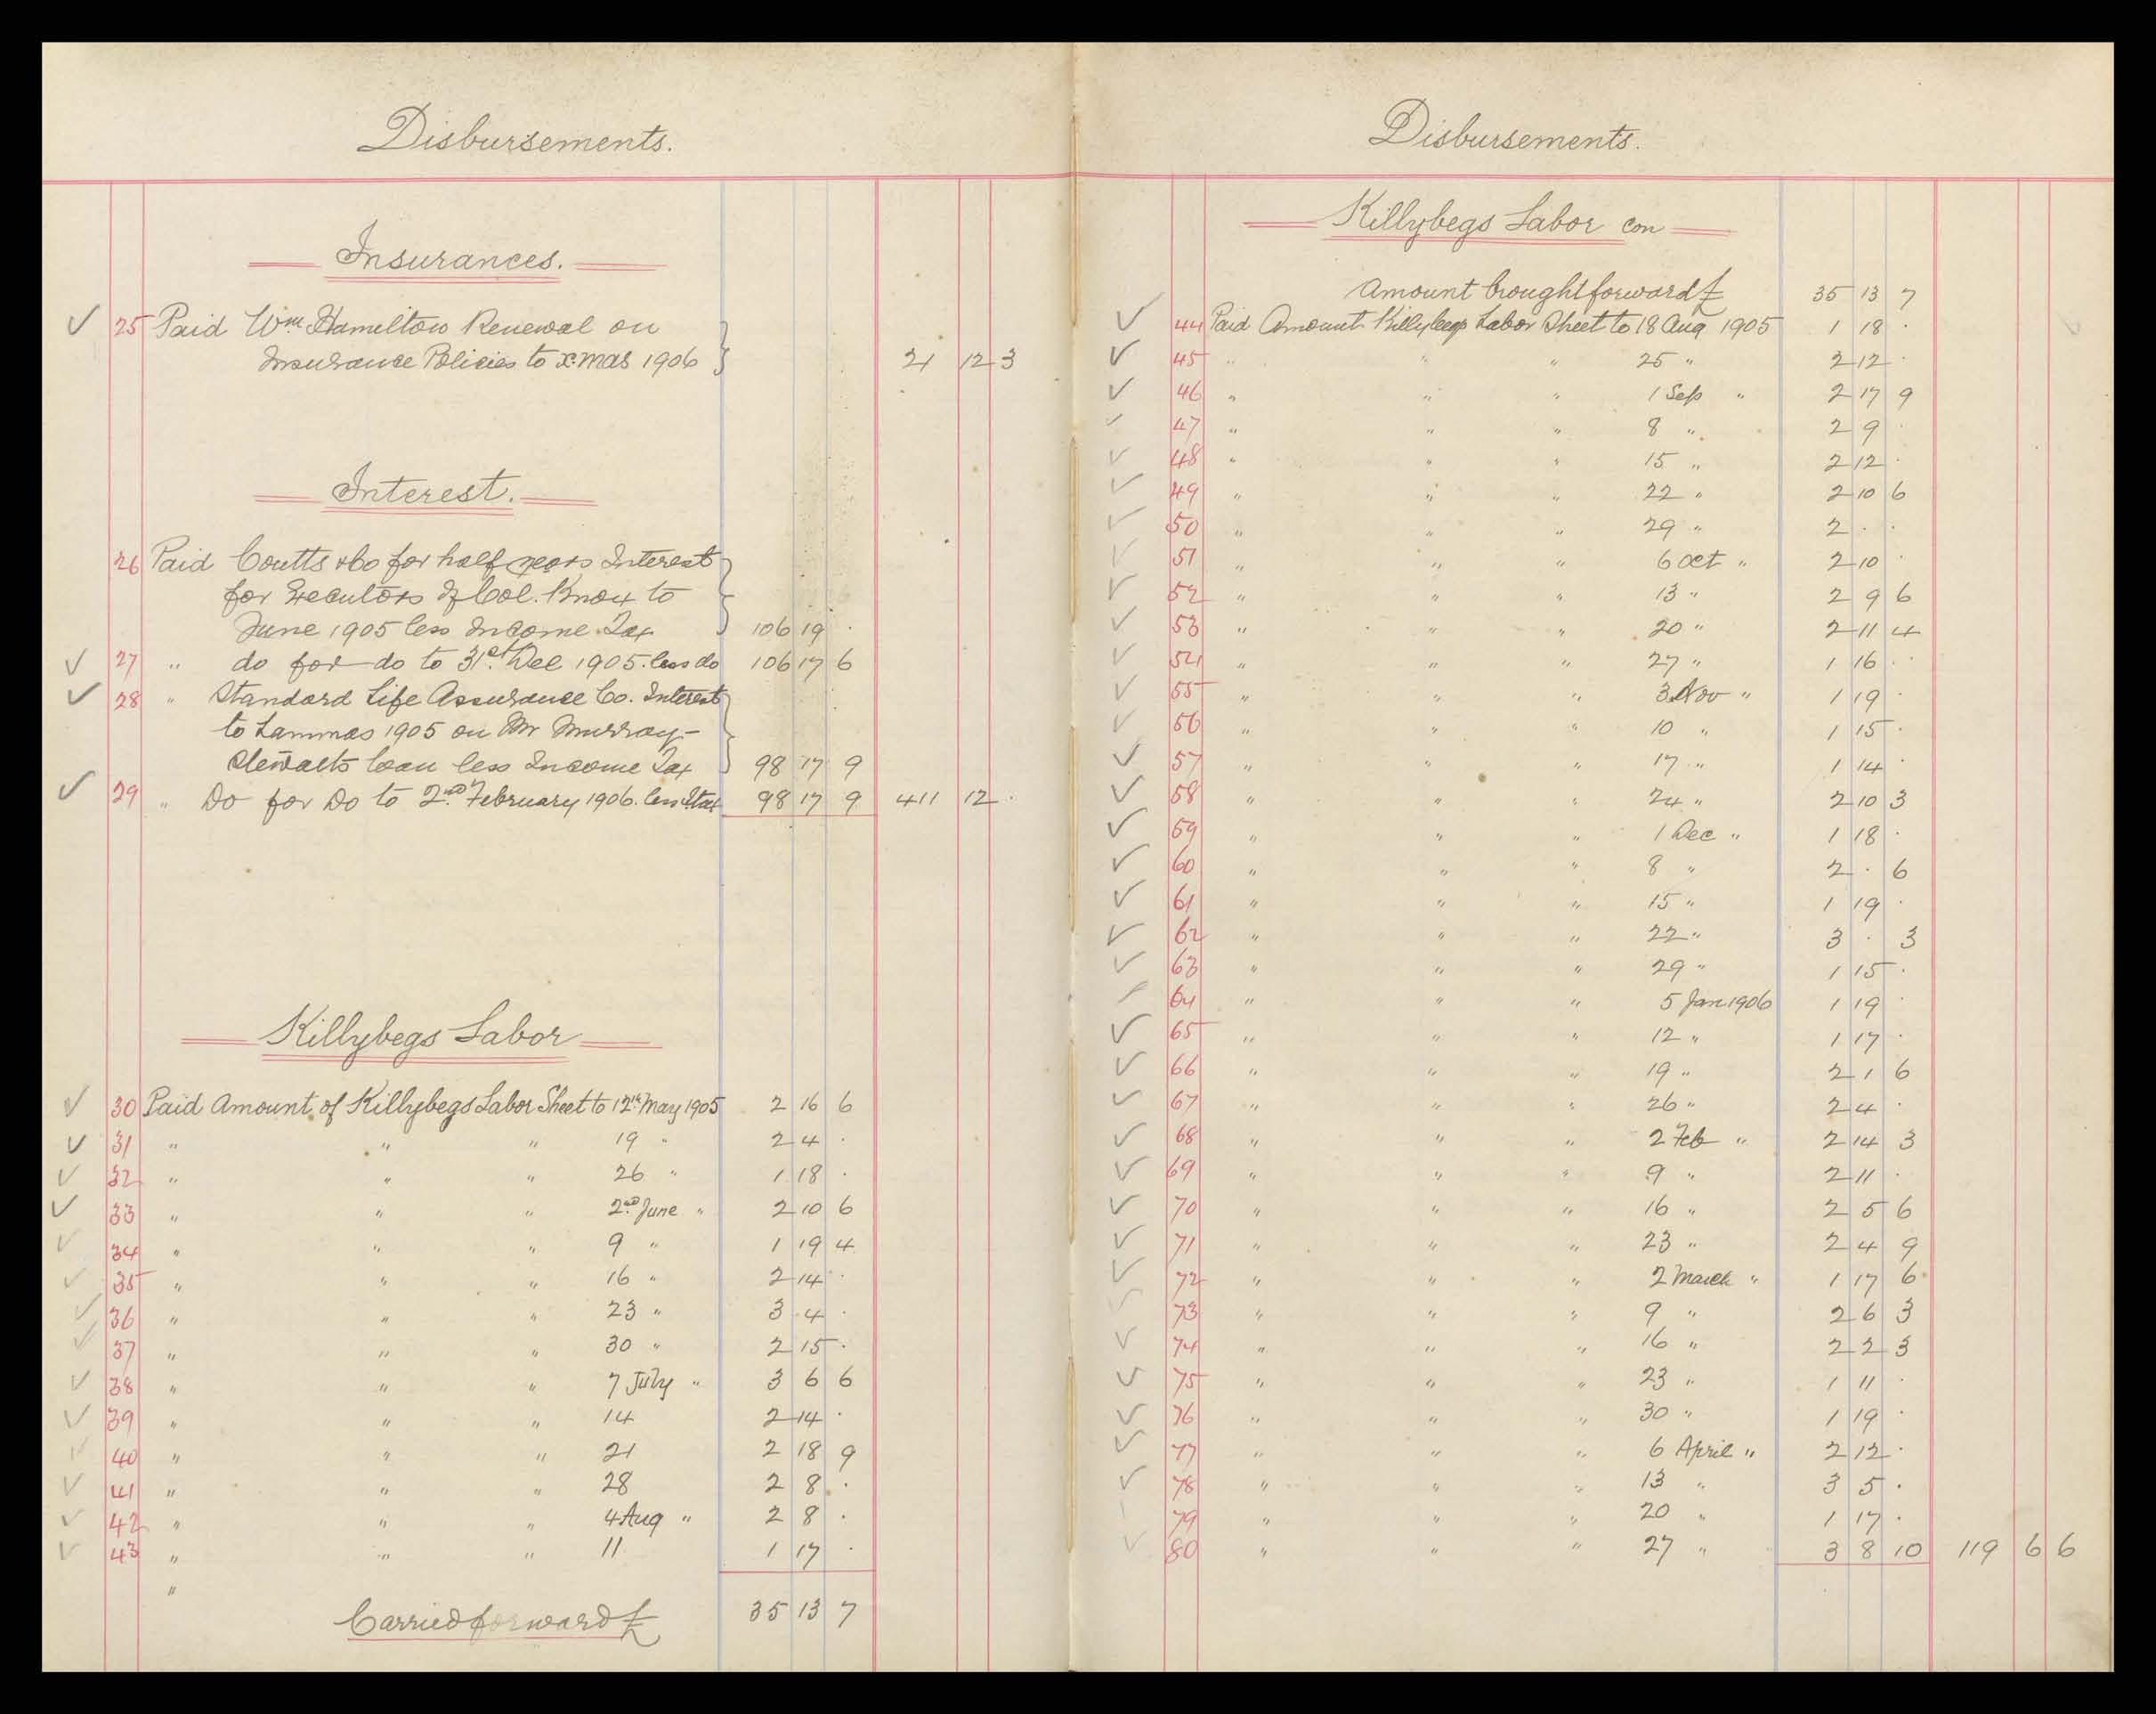 Disbursements.
Insurances.
25 Paid Wm Hamilton Renewal on
Insurance Policies to Xmas 1906 21 12 3
Interest.
26 Paid Coutts & Co for half years Interest
for Executors of Col. Knox to
June 1905 less Income Tax 106 19 .
27 " do for do to 31st Dec 1905. less do 106 17 6
28 " Standard Life Assurance Co. Interest
to Lammas 1905 on Mr Murray-
Stewarts loan less Income Tax 98 17 9
29 " Do for Do to 2nd February 1906. less Itax 98 17 9 411 12 .
Killybegs Labor
30 Paid Amount of Killybegs Labor Sheet to 12th May 1905 2 16 6
31 " " " 19 " 2 4 .
32 " " " 26 " 1 18 .
33 " " " 2nd June " 2 10 6
34 " " " 9 " 1 19 4
35 " " " 16 " 2 14 .
36 " " " 23 " 3 4 .
37 " " " 30 " 2 15 .
38 " " " 7 July " 3 6 6
39 " " " 14 2 14 .
40 " " " 21 2 18 9
41 " " " 28 2 8 .
42 " " " 4 Aug " 2 8 .
43 " " " 11 1 17 .
"
Carried forward £ 35 13 7
Disbursements.
Killybegs Labor con
Amount brought forward £ 35 13 7
44 Paid Amount Killybegs Labor Sheet to 18 Aug 1905 1 18 .
45 " " " 25 " 2 12 .
46 " " " 1 Sep " 2 17 9
47 " " " 8 " 2 9 .
48 " " " 15 " 2 12 .
49 " " " 22 " 2 10 6
50 " " " 29 " 2 . .
51 " " " 6 Oct " 2 10 .
52 " " " 13 " 2 9 6
53 " " " 20 " 2 11 4
54 " " " 27 " 1 16 .
55 " " " 3 Nov " 1 19 .
56 " " " 10 " 1 15 .
57 " " " 17 " 1 14 .
58 " " " 24 " 2 10 3
59 " " " 1 Dec " 1 18 .
60 " " " 8 " 2 . 6
61 " " " 15 " 1 19 .
62 " " " 22 " 3 . 3
63 " " " 29 " 1 15 .
64 " " " 5 Jan 1906 1 19 .
65 " " " 12 " 1 17 .
66 " " " 19 " 2 1 6
67 " " " 26 " 2 4 .
68 " " " 2 Feb " 2 14 3
69 " " " 9 " 2 11 .
70 " " " 16 " 2 5 6
71 " " " 23 " 2 4 9
72 " " " 2 March " 1 17 6
73 " " " 9 " 2 6 3
74 " " " 16 " 2 2 3
75 " " " 23 " 1 11 .
76 " " " 30 " 1 19 .
77 " " " 6 April " 2 12 .
78 " " " 13 " 3 5 .
79 " " " 20 " 1 17 .
80 " " " 27 " 3 8 10 119 6 6